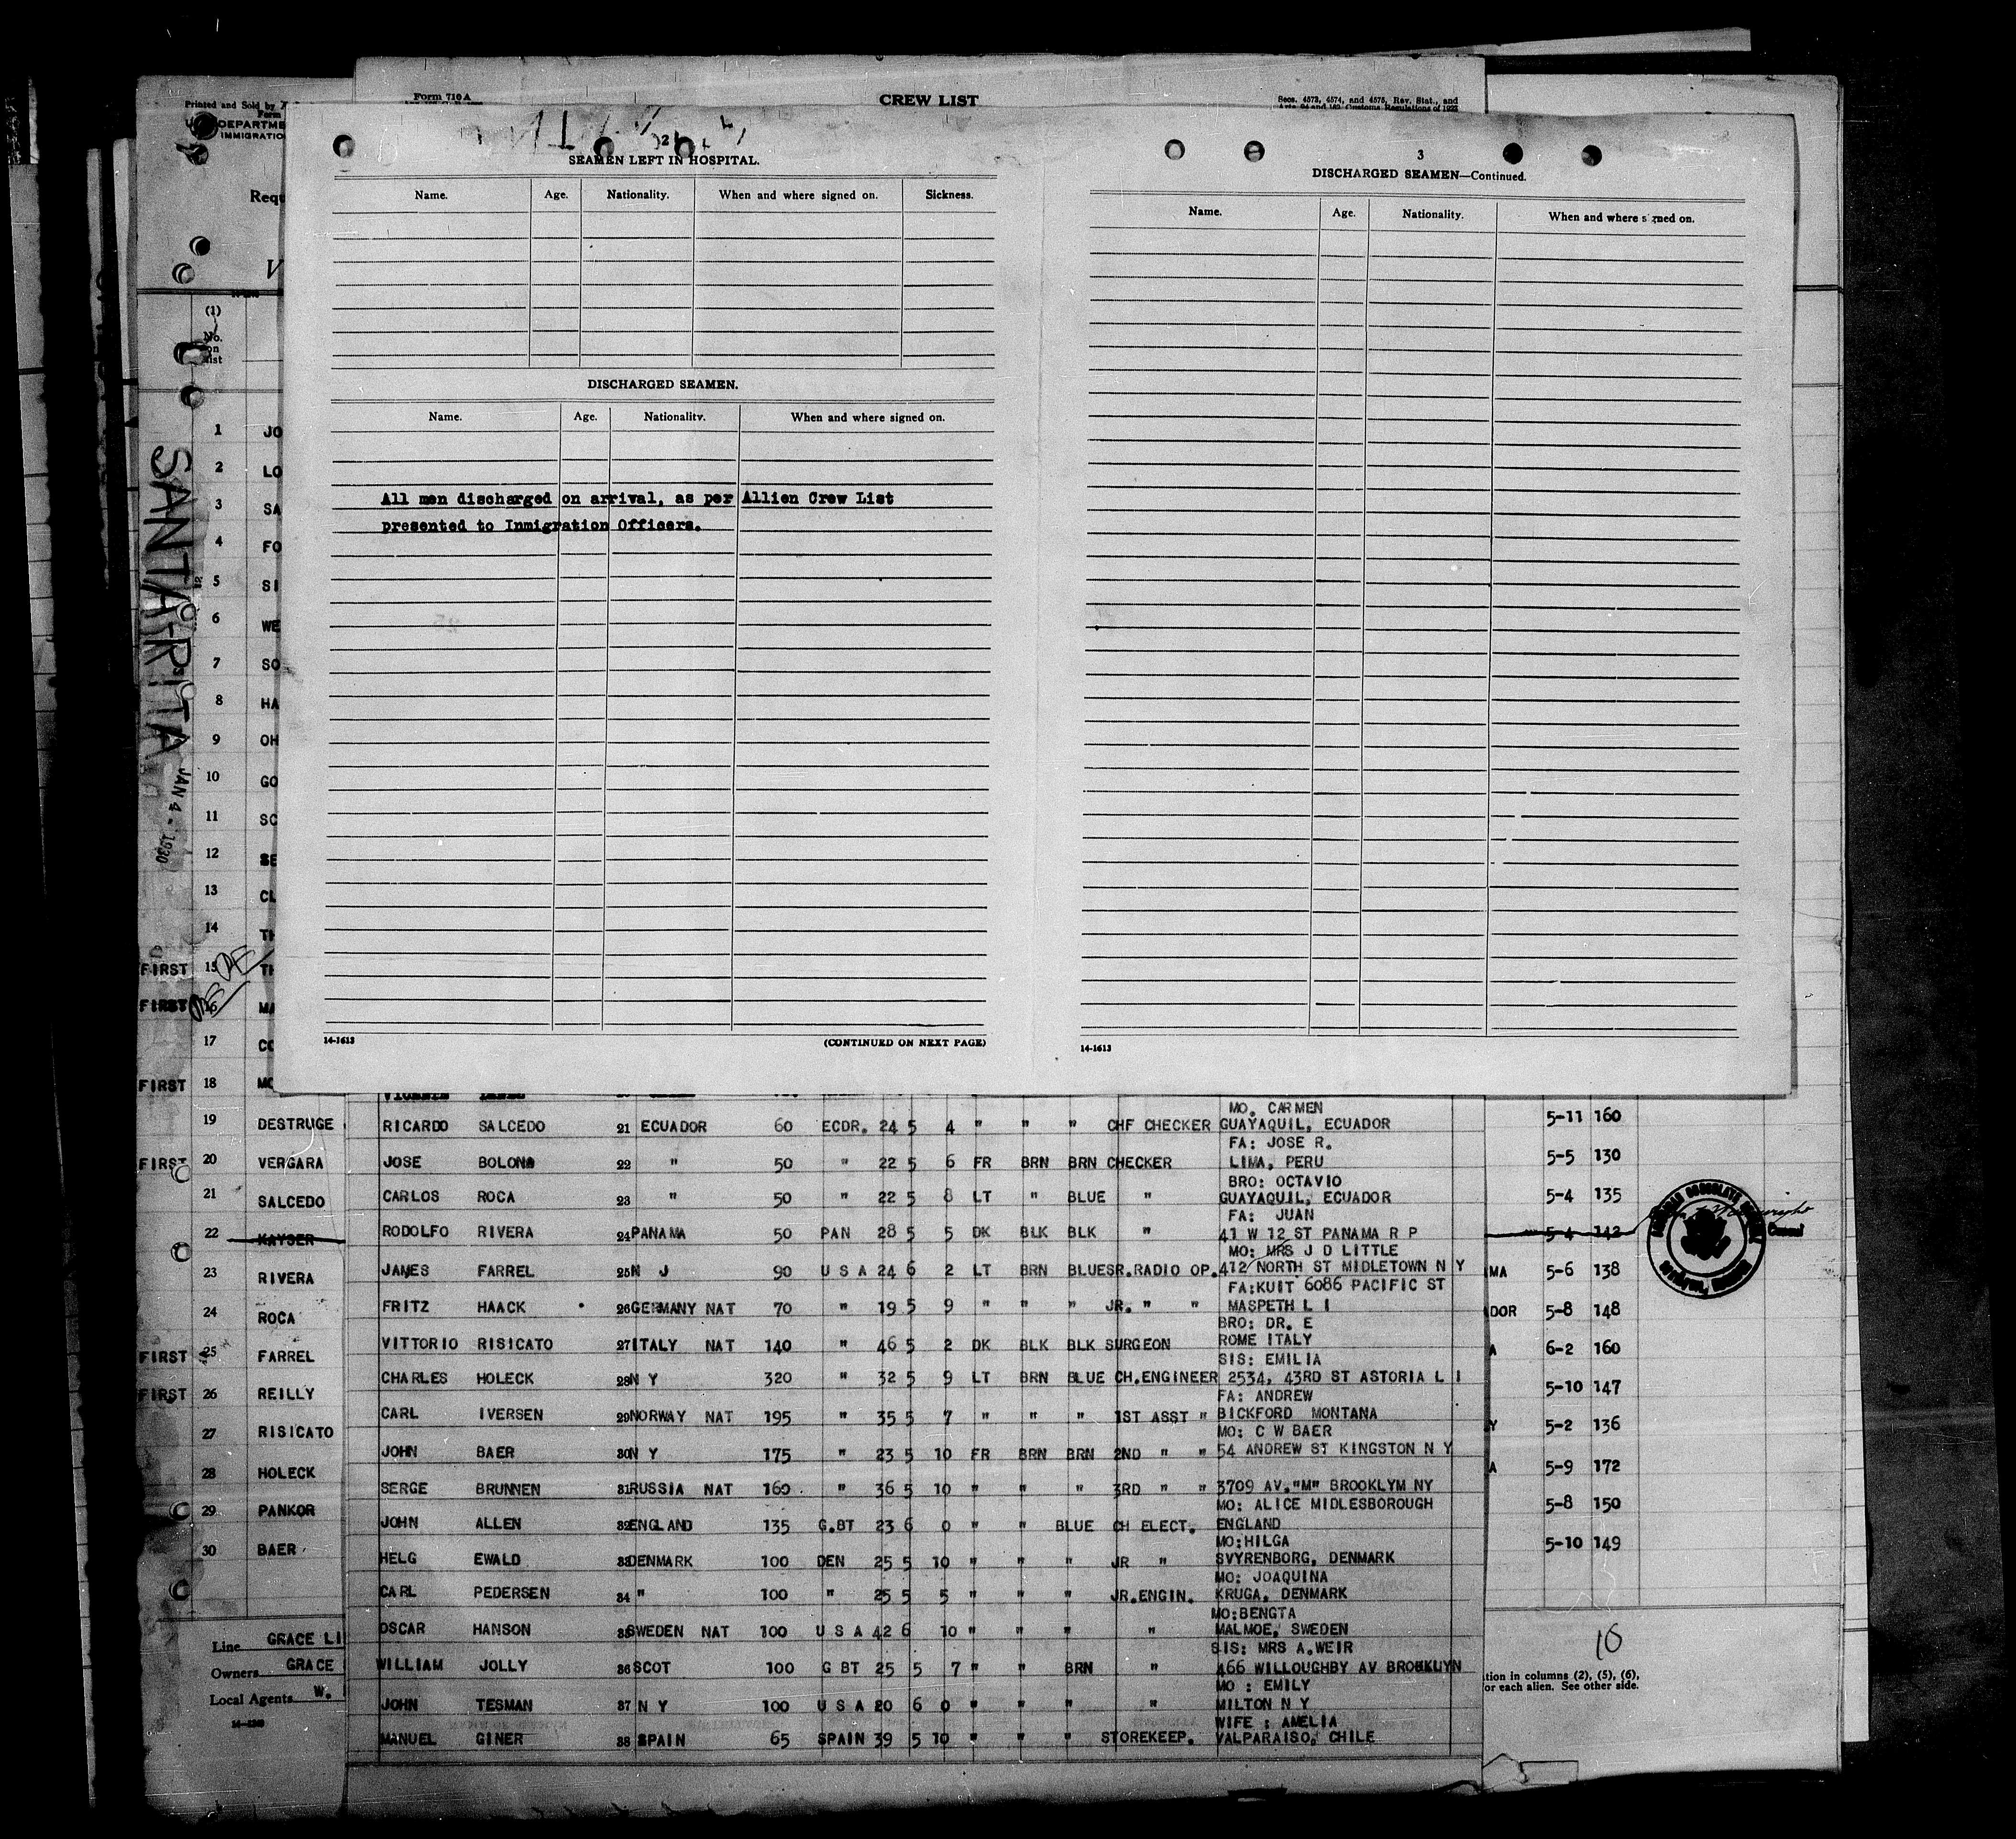 Printed and Sold by
Form
DEPARTME
IMMIGRATIO
Form 710 A
CREW LIST
Secs. 4573, 4574, and 4575, Rev. Stat., and
Arts. 94 and 162, Customs Regulations of 1923
Requ
V
(1)
No.
on
list
SANTA RITA
JAN 4 - 1930
2
SEAMEN LEFT IN HOSPITAL.
Name. Age. Nationality. When and where signed on. Sickness.
DISCHARGED SEAMEN.
Name. Age. Nationality. When and where signed on.
All men discharged on arrival, as per Allien Crew List
presented to Inmigration Officers.
14-1613
(CONTINUED ON NEXT PAGE)
3
DISCHARGED SEAMEN—Continued.
Name. Age. Nationality. When and where signed on.
14-1613
1 JO
2 LO
3 SA
4 FO
5 SI
6 WE
7 SO
8 HA
9 OH
10 GO
11 SC
12 SE
13 CL
14 TH
FIRST 15 TH
FIRST 16 MA
17 CO
FIRST 18 MO
19 DESTRUGE
FIRST 20 VERGARA
21 SALCEDO
22 KAYSER
23 RIVERA
24 ROCA
FIRST 25 FARREL
FIRST 26 REILLY
27 RISICATO
28 HOLECK
29 PANKOR
30 BAER
Line GRACE LI
Owners GRACE
Local Agents W.
MO. CARMEN
RICARDO SALCEDO 21 ECUADOR 60 ECDR. 24 5 4 " " " CHF CHECKER GUAYAQUIL, ECUADOR
FA: JOSE R.
JOSE BOLONA 22 " 50 " 22 5 6 FR BRN BRN CHECKER LIMA, PERU
BRO: OCTAVIO
CARLOS ROCA 23 " 50 " 22 5 8 LT " BLUE " GUAYAQUIL, ECUADOR
FA: JUAN
RODOLFO RIVERA 24 PANAMA 50 PAN 28 5 5 DK BLK BLK " 41 W 12 ST PANAMA R P
MO: MRS J D LITTLE
JAMES FARREL 25 N J 90 U S A 24 6 2 LT BRN BLUE SR.RADIO OP. 412 NORTH ST MIDLETOWN N Y
FA:KUIT 6086 PACIFIC ST
FRITZ HAACK 26 GERMANY NAT 70 " 19 5 9 " " " JR. " " MASPETH L I
BRO: DR. E
VITTORIO RISICATO 27 ITALY NAT 140 " 46 5 2 DK BLK BLK SURGEON ROME ITALY
SIS: EMILIA
CHARLES HOLECK 28 N Y 320 " 32 5 9 LT BRN BLUE CH.ENGINEER 2534, 43RD ST ASTORIA L I
FA: ANDREW
CARL IVERSEN 29 NORWAY NAT 195 " 35 5 7 " " " 1ST ASST " BICKFORD MONTANA
MO: C W BAER
JOHN BAER 30 N Y 175 " 23 5 10 FR BRN BRN 2ND " " 54 ANDREW ST KINGSTON N Y
SERGE BRUNNEN 31 RUSSIA NAT 160 " 36 5 10 " " " 3RD " " 3709 AV."M" BROOKLYM NY
MO: ALICE MIDLESBOROUGH
JOHN ALLEN 32 ENGLAND 135 G.BT 23 6 0 " " BLUE CH ELECT. ENGLAND
MO:HILGA
HELG EWALD 33 DENMARK 100 DEN 25 5 10 " " " JR " SVYRENBORG, DENMARK
MO: JOAQUINA
CARL PEDERSEN 34 " 100 " 25 5 5 " " " JR.ENGIN. KRUGA, DENMARK
MO:BENGTA
OSCAR HANSON 35 SWEDEN NAT 100 U S A 42 6 10 " " " " MALMOE, SWEDEN
SIS: MRS A.WEIR
WILLIAM JOLLY 36 SCOT 100 G BT 25 5 7 " " BRN " 466 WILLOUGHBY AV BROOKLYN
MO : EMILY
JOHN TESMAN 37 N Y 100 U S A 20 6 0 " " " " MILTON N Y
WIFE : AMELIA
MANUEL GINER 38 SPAIN 65 SPAIN 39 5 10 " " " STOREKEEP. VALPARAISO, CHILE
5-11 160
5-5 130
5-4 135
5-4 142
MA 5-6 138
DOR 5-8 148
A 6-2 160
5-10 147
Y 5-2 136
A 5-9 172
5-8 150
5-10 149
Consul
10
tion in columns (2), (5), (6),
or each alien. See other side.